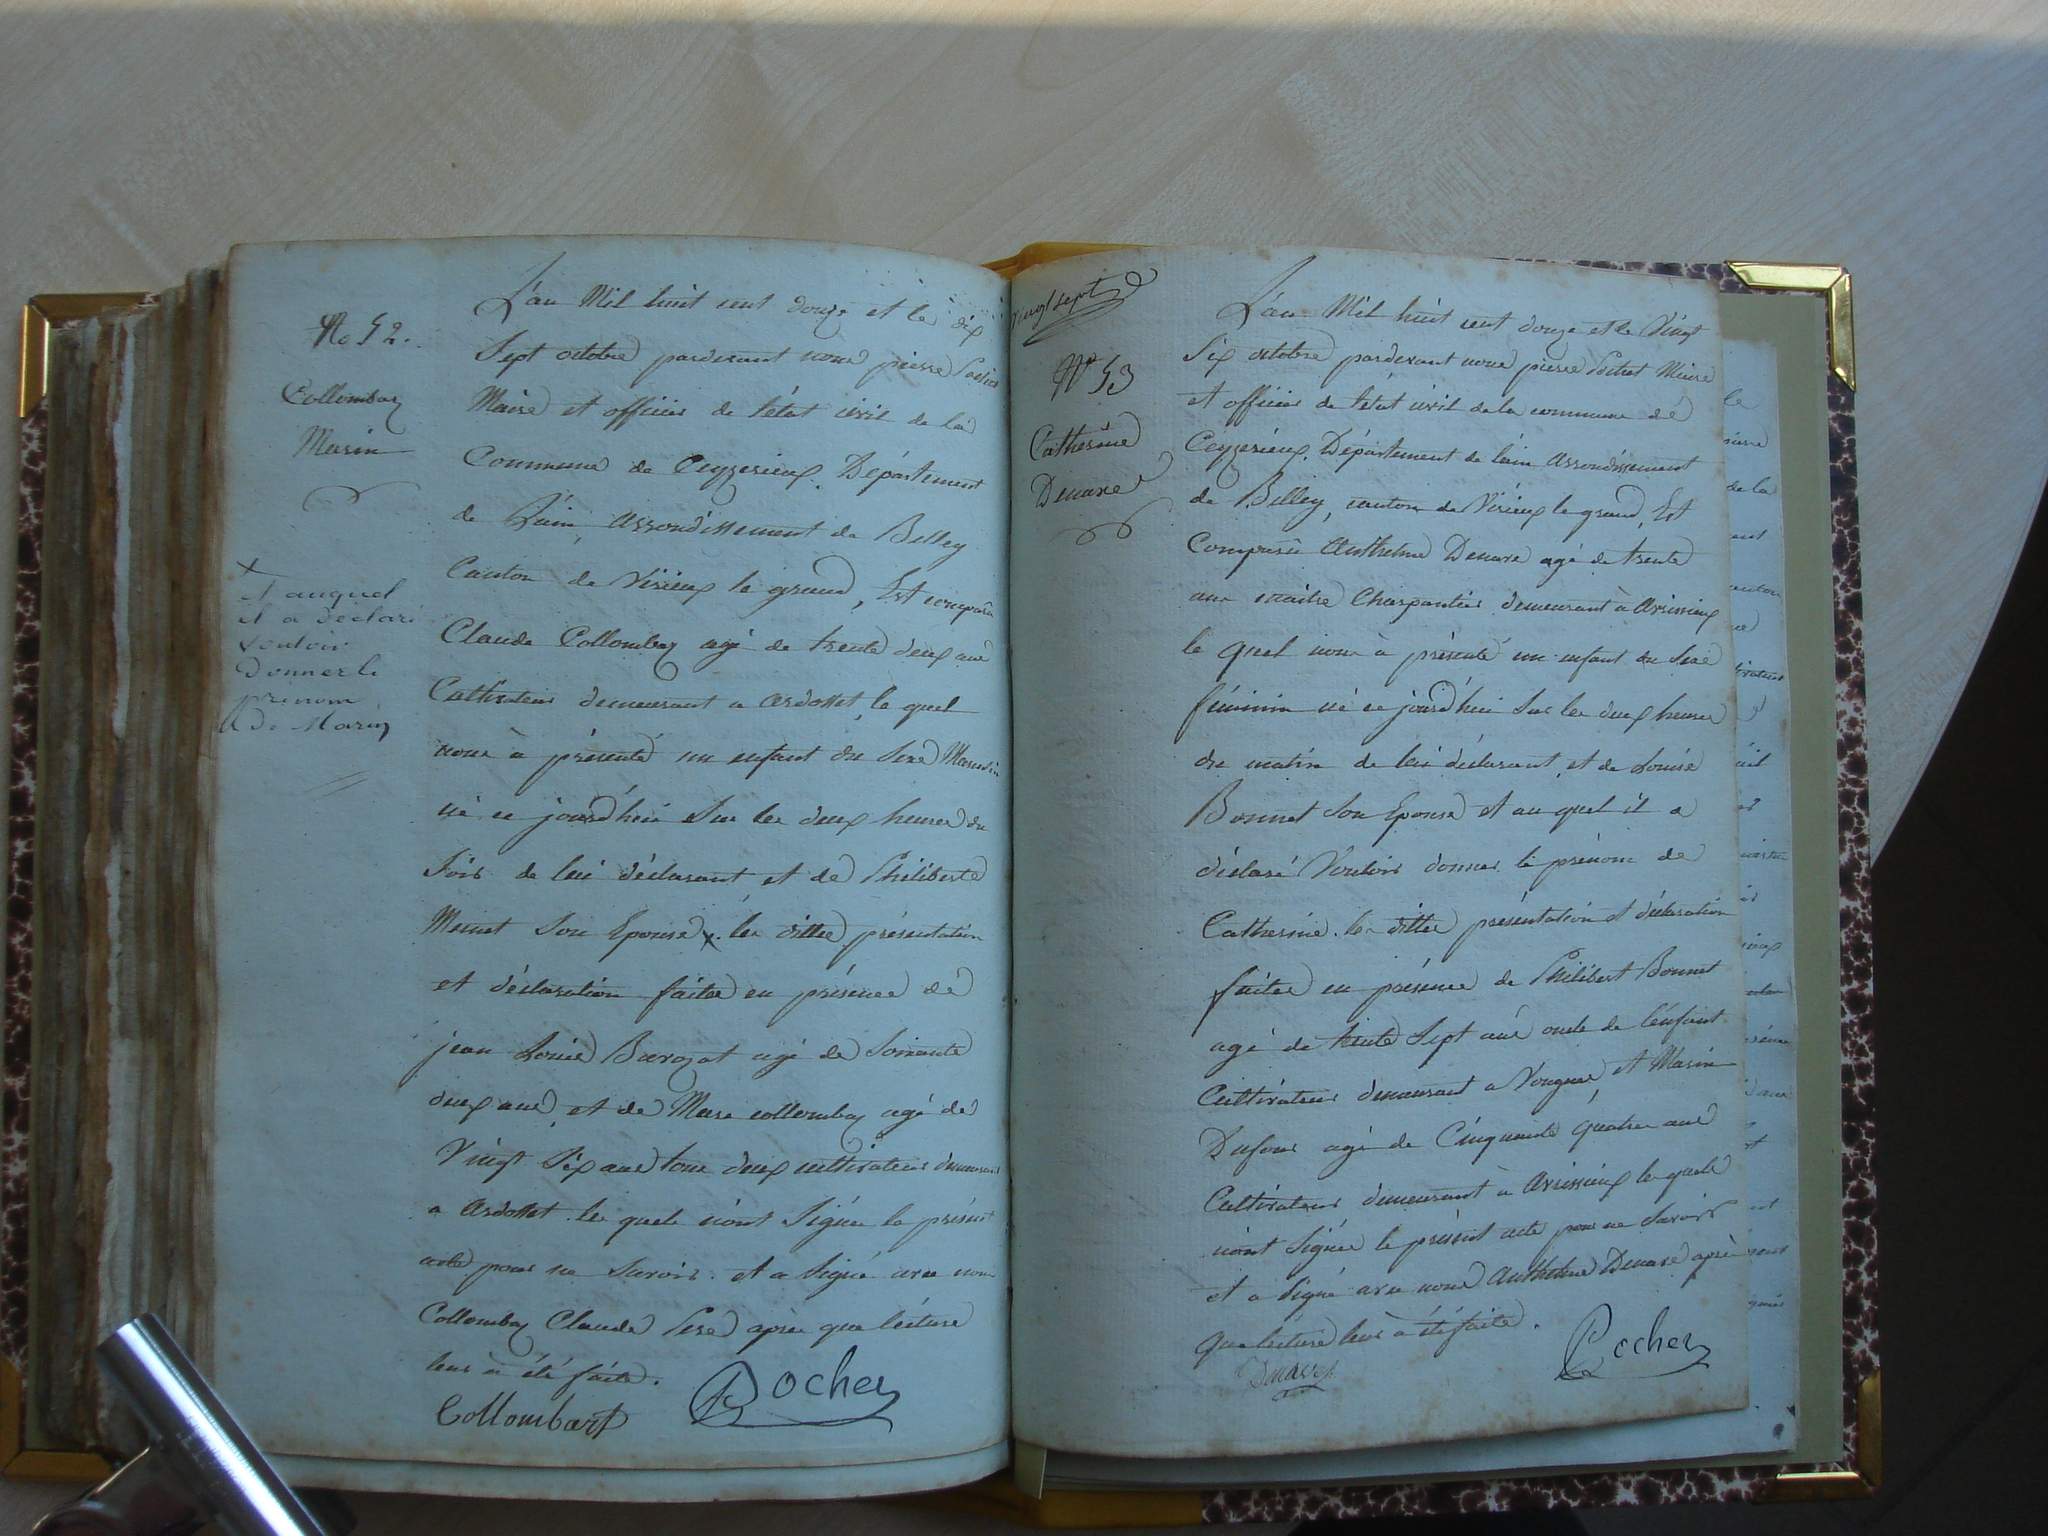 No 52.
Collombaz
Marin
L'an Mil huit cent douze et le dix
Sept octobre pardevant nous pierre Pochet
Maire et officier de l'état civil de la
Commune de Ceyzerieux. Département
de L'ain, arrondissement de Belley
Canton de Virieux le grand, Est comparu
Claude Collombaz agé de trente deux ans
Cultivateur demeurant a ardosset, le quel
nous à présenté un enfant du Sexe Masculin
né ce jourd'hui Sur les deux heures du
Soir de lui déclarant et de Philiberte
Monet Son Epouse x les dittes présentation
et déclaration faites en présence de
jean Louis Barozat agé de Soixante
deux ans, et de Marc collombaz agé de
Vingt Six ans tous deux cultivateurs demeurant
a ardosset les quels n'ont Signés le présent
acte pour ne Savoir. et a Signé avec nous
Collombaz Claude Pere après que lécture
leur à été faite.
x
et auquel
il a déclaré
vouloir
donner le
prénom
de Marin
Collombart
Pochet
Vingt sept
N° 53
Catherine
Denare
L'an Mil huit cent douze et le Vingt
Six octobre pardevant nous pierre Pochet Maire
et officier de l'état civil de la commune de
Ceyzerieux. Département de l'ain arrondissement
de Belley, canton de Virieux le grand, Est
Comparu Anthelme Denare agé de trente
ans maitre Charpentier demeurant à avrissieux
le quel nous à présenté un enfant du Sexe
féminin né ce jourd'hui Sur les deux heures
du matin de lui déclarant, et de Louise
Bonnet Son Epouse et au quel il a
déclaré Vouloir donner le prénom de
Catherine. les dittes présentation et déclaration
faites en présence de Philibert Bonnet
agé de trente Sept ans oncle de l'enfant
Cultivateur demeurant a Vongnes, et Marin
Dufour agé de Cinquante quatre ans
Cultivateur demeurant à avrissieux les quels
n'ont Signés le présent acte pour ne Savoir
et a Signé avec nous Anthelme Denare après
que lécture leur à été faite.
Pochet